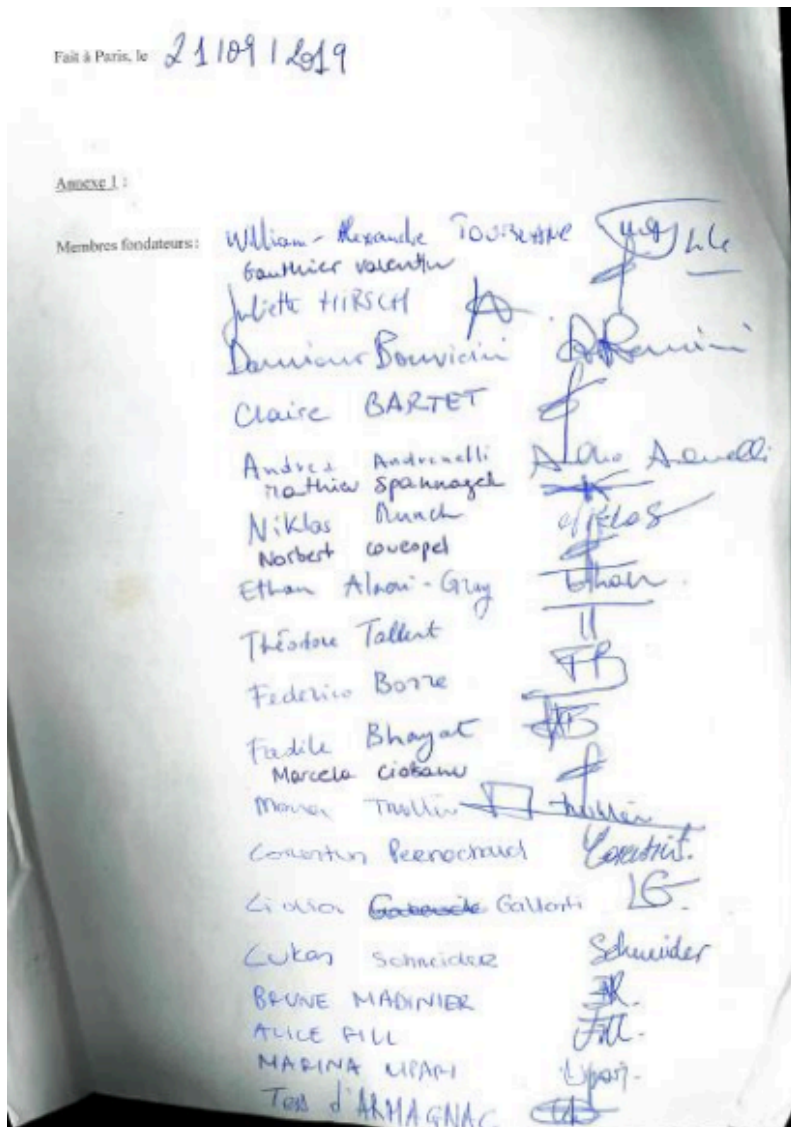 Fait à Paris, le 21/09/2019
Annexe 1 :
Membres fondateurs : William-Alexandre
Gauthier Valentin
Juliette HIRSCH
Claire BARTET
Andrea Andrenelli
Mathieu Spannagel
Niklas Munch Niklas
Norbert
Ethan Alaoui-Gray Ethan
Théodore Tallent
Federico Borre FB
Fadile Bhayat
Marcela Ciobanu
Trollin
Corentin Corentin.
Gallorti LG.
Lukas Schneider Schneider
BRUNE MADINIER
ALICE FILL Fill.
MARINA LIPARI Lipari.
Tess d'ARMAGNAC